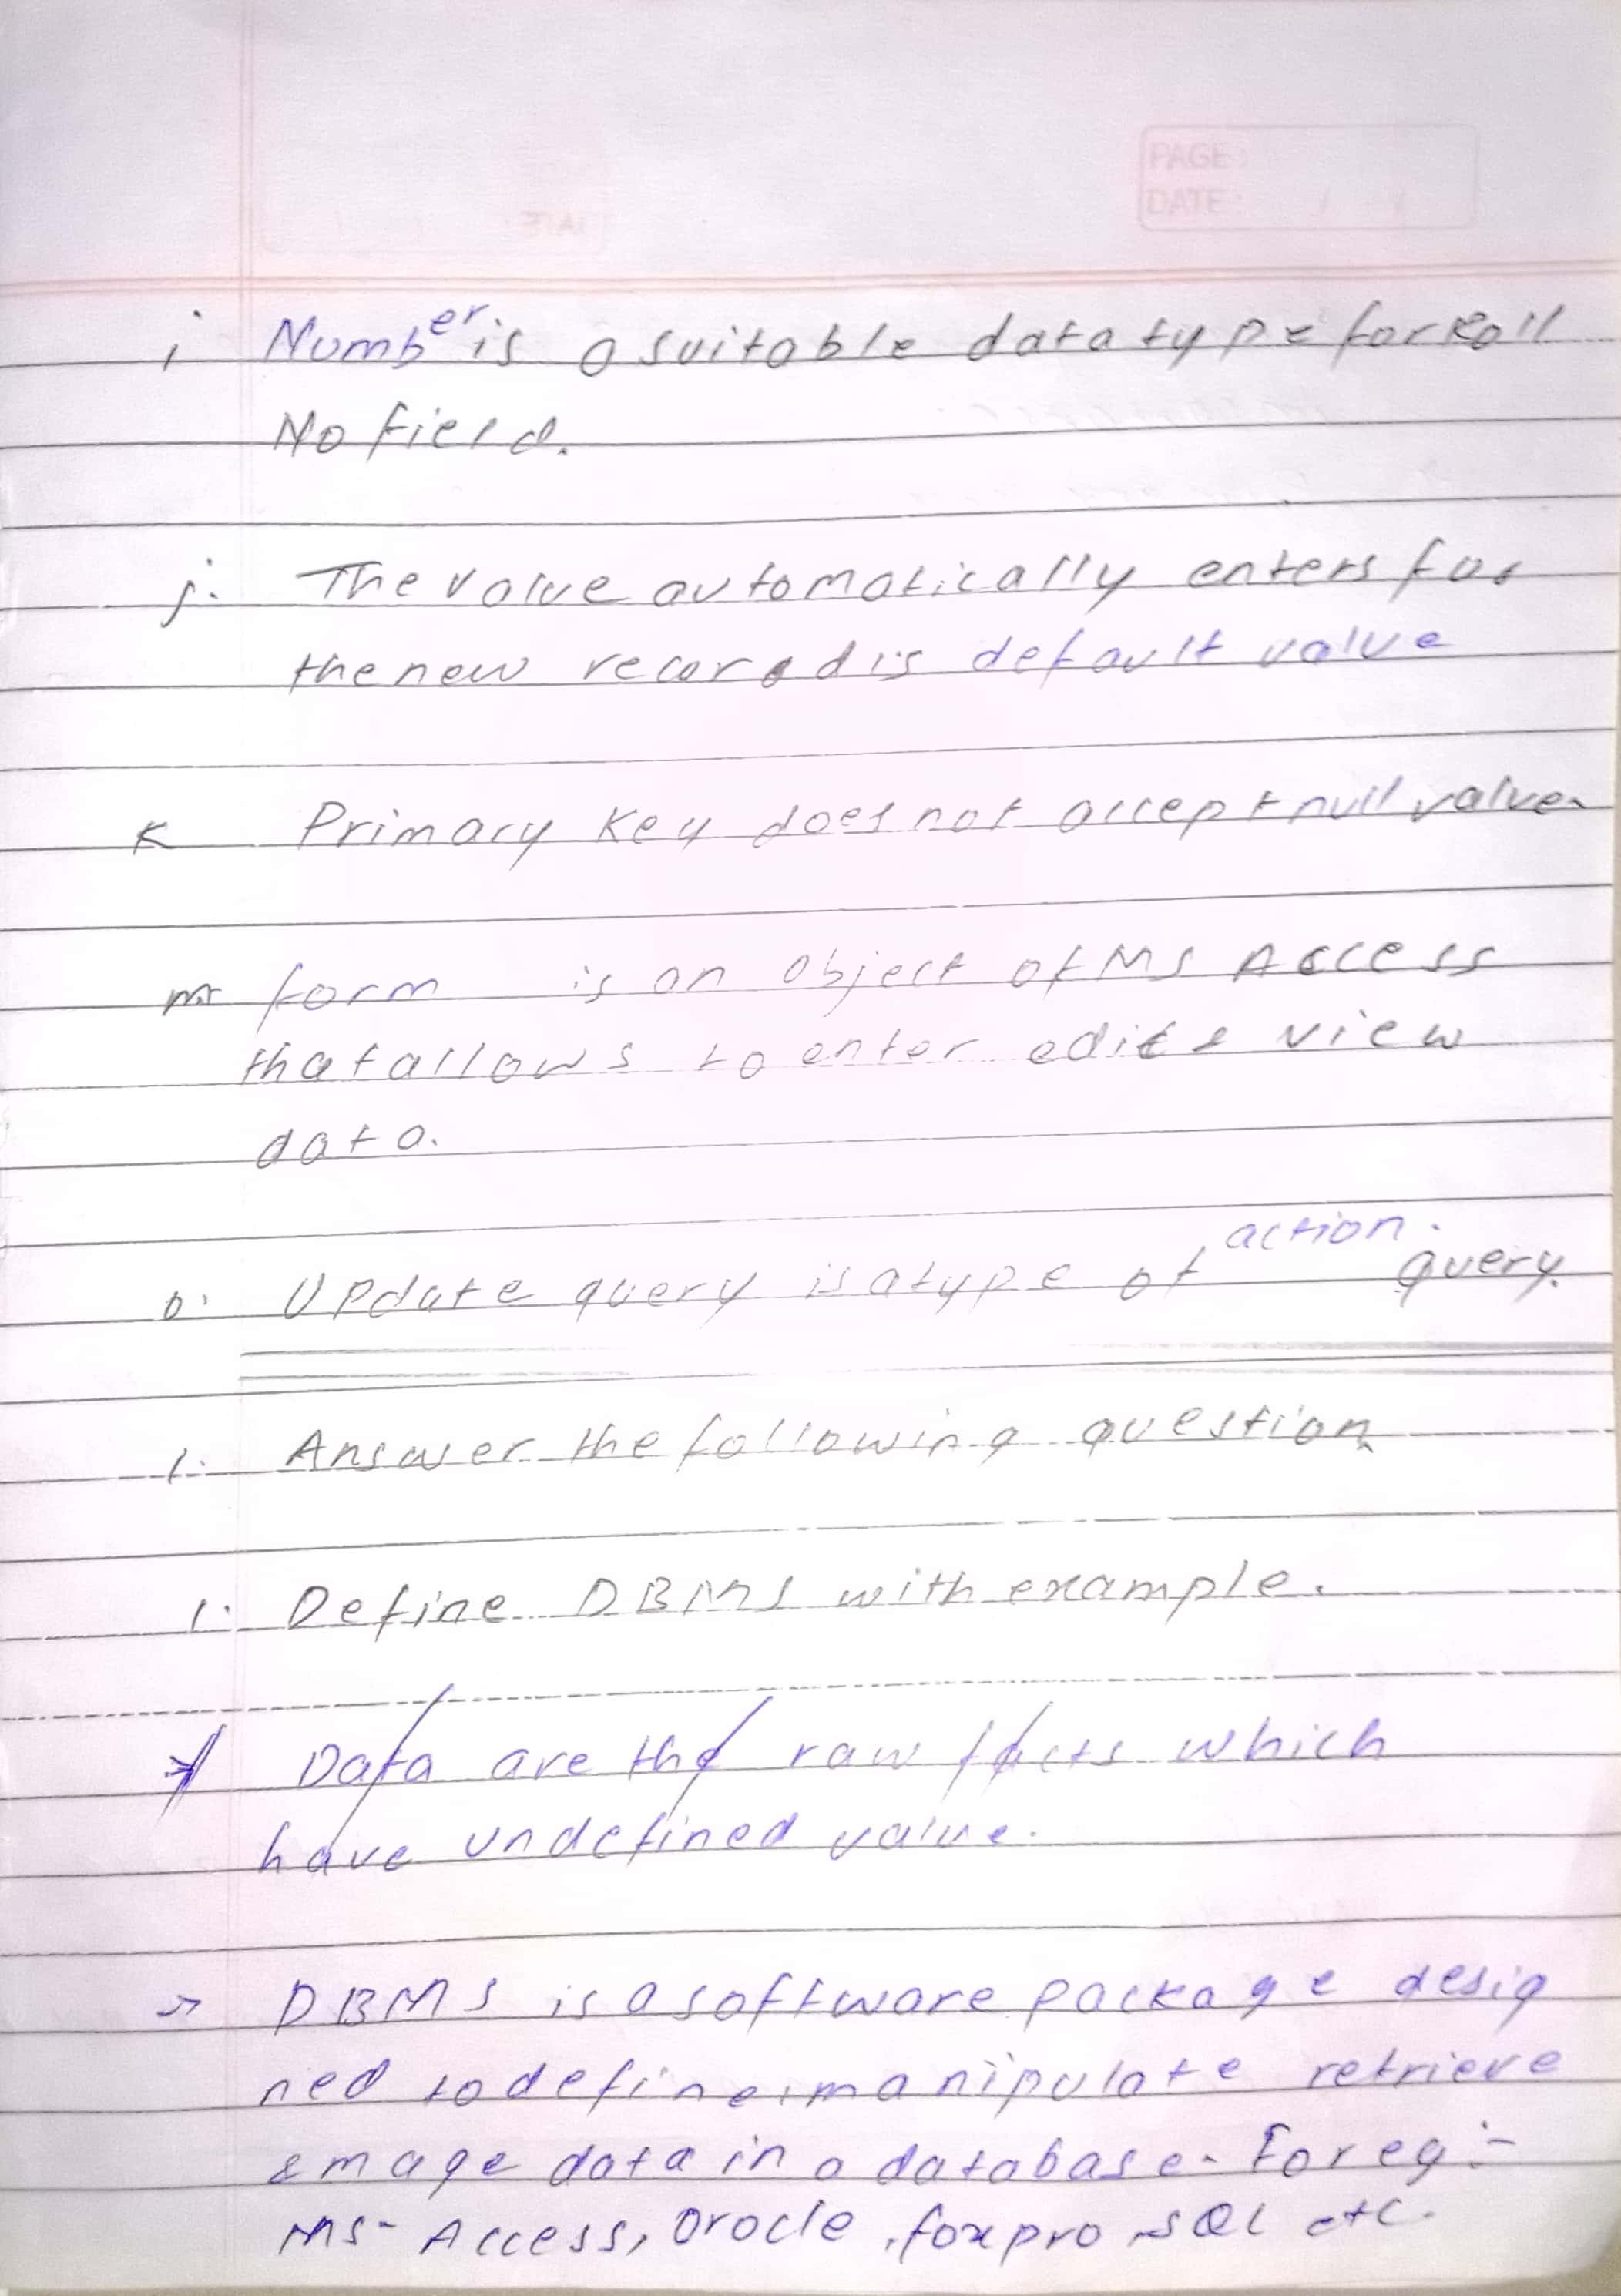 PAGE:
DATE: / /
i Number is a suitable data type for Roll
No field.
j. The value automatically enters for
the new record is default value
k Primary key does not accept null value.
m form is an object of MS Access
that allows to enter edit & view
data.
o. Update query is a type of action. query.
1. Answer the following question
1. Define DBMS with example.
Data are the raw facts which
have undefined value.
→ DBMS is a software package desig
ned to define, manipulate retrieve
& mage data in a database. For eg:-
MS- Access, Oracle, foxpro, SQL etc.